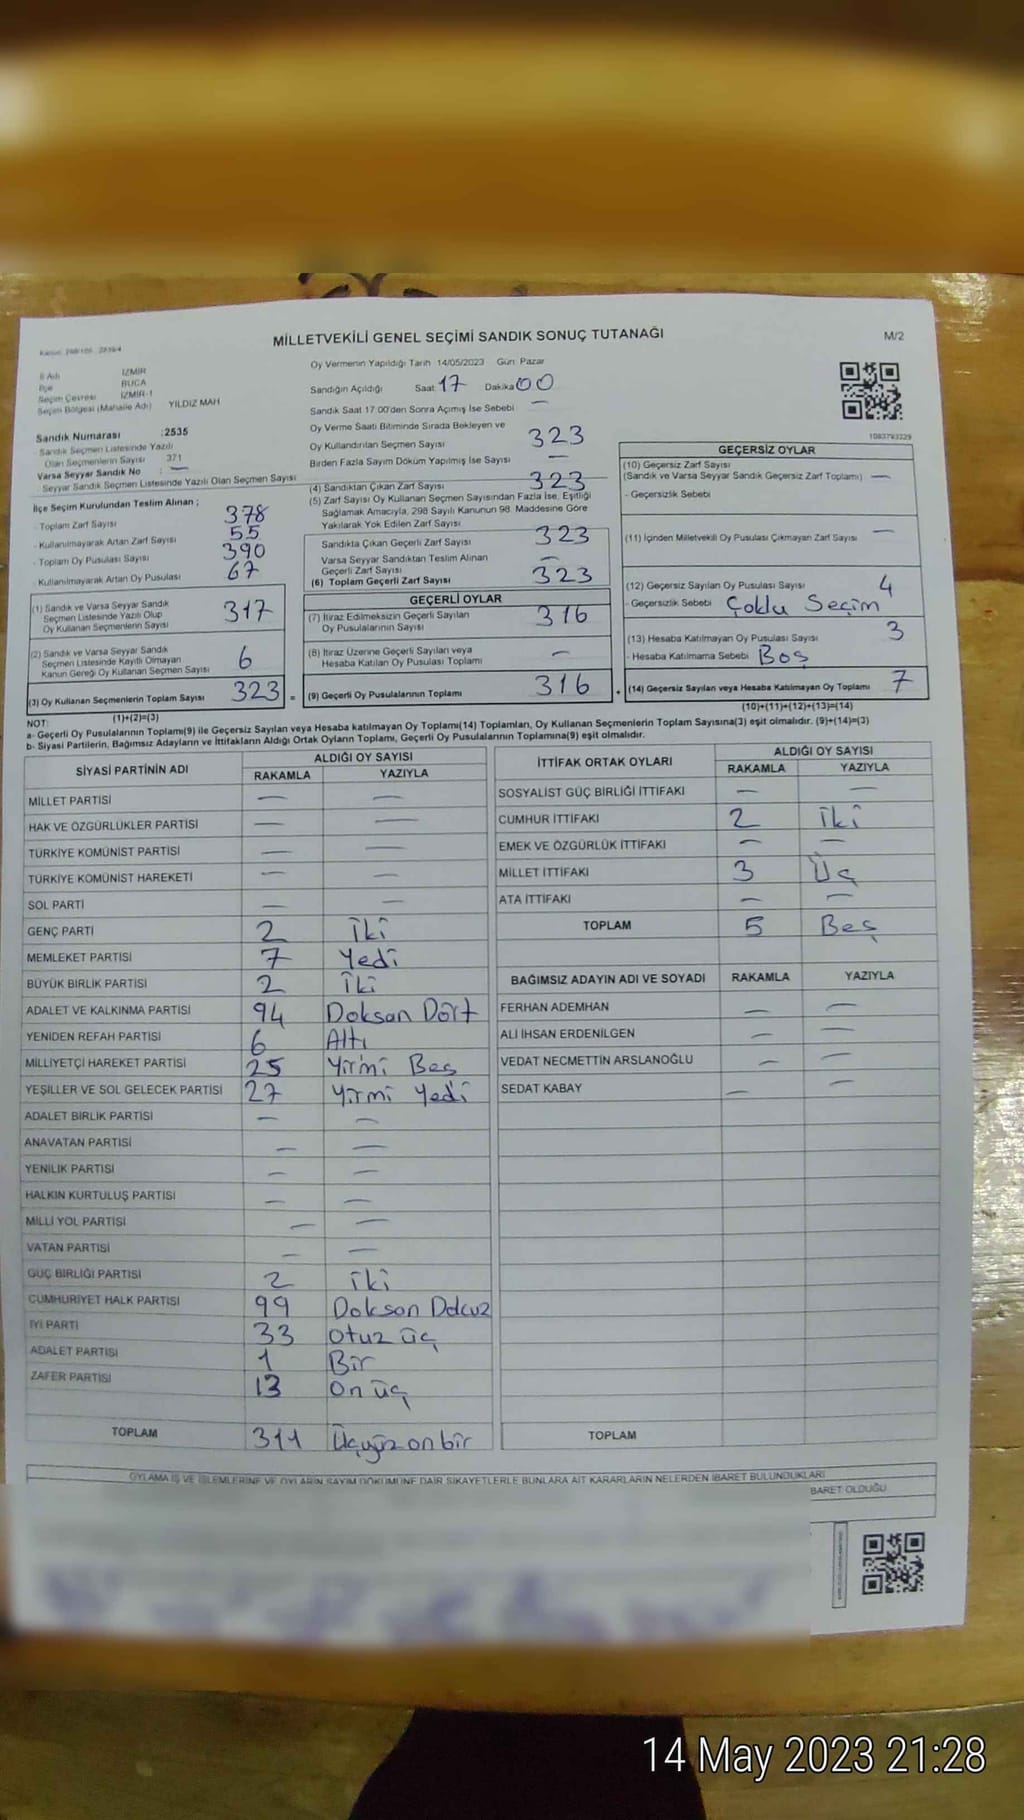 MİLLETVEKİLİ GENEL SEÇİMİ SANDIK SONUÇ TUTANAĞI
M/2
İl Adı İZMİR
İlçe BUCA
Seçim Çevresi İZMİR-1
Seçim Bölgesi (Mahalle Adı) YILDIZ MAH
Sandık Numarası :2535
Sandık Seçmen Listesinde Yazılı
Olan Seçmenlerin Sayısı 371
Varsa Seyyar Sandık No : —
Seyyar Sandık Seçmen Listesinde Yazılı Olan Seçmen Sayısı
İlçe Seçim Kurulundan Teslim Alınan ;
- Toplam Zarf Sayısı 378
- Kullanılmayarak Artan Zarf Sayısı 55
- Toplam Oy Pusulası Sayısı 390
- Kullanılmayarak Artan Oy Pusulası 67
(1) Sandık ve Varsa Seyyar Sandık
Seçmen Listesinde Yazılı Olup
Oy Kullanan Seçmenlerin Sayısı 317
(2) Sandık ve Varsa Seyyar Sandık
Seçmen Listesinde Kayıtlı Olmayan
Kanun Gereği Oy Kullanan Seçmen Sayısı 6
(3) Oy Kullanan Seçmenlerin Toplam Sayısı 323 =
(1)+(2)=(3)
Oy Vermenin Yapıldığı Tarih 14/05/2023 Gün: Pazar
Sandığın Açıldığı Saat 17 Dakika 00
Sandık Saat 17 00'den Sonra Açılmış İse Sebebi —
Oy Verme Saati Bitiminde Sırada Bekleyen ve
Oy Kullandırılan Seçmen Sayısı 323
Birden Fazla Sayım Döküm Yapılmış İse Sayısı —
(4) Sandıktan Çıkan Zarf Sayısı 323
(5) Zarf Sayısı Oy Kullanan Seçmen Sayısından Fazla İse, Eşitliği
Sağlamak Amacıyla, 298 Sayılı Kanunun 98. Maddesine Göre
Yakılarak Yok Edilen Zarf Sayısı
Sandıkta Çıkan Geçerli Zarf Sayısı 323
Varsa Seyyar Sandıktan Teslim Alınan
Geçerli Zarf Sayısı —
(6) Toplam Geçerli Zarf Sayısı 323
GEÇERLİ OYLAR
(7) İtiraz Edilmeksizin Geçerli Sayılan
Oy Pusulalarının Sayısı 316
(8) İtiraz Üzerine Geçerli Sayılan veya
Hesaba Katılan Oy Pusulası Toplamı —
(9) Geçerli Oy Pusulalarının Toplamı 316 +
1083793229
GEÇERSİZ OYLAR
(10) Geçersiz Zarf Sayısı
(Sandık ve Varsa Seyyar Sandık Geçersiz Zarf Toplamı) —
- Geçersizlik Sebebi
(11) İçinden Milletvekili Oy Pusulası Çıkmayan Zarf Sayısı —
(12) Geçersiz Sayılan Oy Pusulası Sayısı 4
- Geçersizlik Sebebi Çoklu Seçim
(13) Hesaba Katılmayan Oy Pusulası Sayısı 3
- Hesaba Katılmama Sebebi Boş
(14) Geçersiz Sayılan veya Hesaba Katılmayan Oy Toplamı 7
(10)+(11)+(12)+(13)=(14)
NOT:
a- Geçerli Oy Pusulalarının Toplamı(9) ile Geçersiz Sayılan veya Hesaba katılmayan Oy Toplamı(14) Toplamları, Oy Kullanan Seçmenlerin Toplam Sayısına(3) eşit olmalıdır. (9)+(14)=(3)
b- Siyasi Partilerin, Bağımsız Adayların ve İttifakların Aldığı Ortak Oyların Toplamı, Geçerli Oy Pusulalarının Toplamına(9) eşit olmalıdır.
SİYASİ PARTİNİN ADI ALDIĞI OY SAYISI
RAKAMLA YAZIYLA
MİLLET PARTİSİ — —
HAK VE ÖZGÜRLÜKLER PARTİSİ — —
TÜRKİYE KOMÜNİST PARTİSİ — —
TÜRKİYE KOMÜNİST HAREKETİ — —
SOL PARTİ — —
GENÇ PARTİ 2 İki
MEMLEKET PARTİSİ 7 Yedi
BÜYÜK BİRLİK PARTİSİ 2 İki
ADALET VE KALKINMA PARTİSİ 94 Doksan Dört
YENİDEN REFAH PARTİSİ 6 Altı
MİLLİYETÇİ HAREKET PARTİSİ 25 Yirmi Beş
YEŞİLLER VE SOL GELECEK PARTİSİ 27 Yirmi Yedi
ADALET BİRLİK PARTİSİ — —
ANAVATAN PARTİSİ — —
YENİLİK PARTİSİ — —
HALKIN KURTULUŞ PARTİSİ — —
MİLLİ YOL PARTİSİ — —
VATAN PARTİSİ — —
GÜÇ BİRLİĞİ PARTİSİ 2 İki
CUMHURİYET HALK PARTİSİ 99 Doksan Dokuz
İYİ PARTİ 33 Otuz üç
ADALET PARTİSİ 1 Bir
ZAFER PARTİSİ 13 On üç
TOPLAM 311 Üçyüz on bir
İTTİFAK ORTAK OYLARI ALDIĞI OY SAYISI
RAKAMLA YAZIYLA
SOSYALİST GÜÇ BİRLİĞİ İTTİFAKI — —
CUMHUR İTTİFAKI 2 İki
EMEK VE ÖZGÜRLÜK İTTİFAKI — —
MİLLET İTTİFAKI 3 Üç
ATA İTTİFAKI — —
TOPLAM 5 Beş
BAĞIMSIZ ADAYIN ADI VE SOYADI RAKAMLA YAZIYLA
FERHAN ADEMHAN — —
ALİ İHSAN ERDENİLGEN — —
VEDAT NECMETTİN ARSLANOĞLU — —
SEDAT KABAY — —
TOPLAM
OYLAMA İŞ VE İŞLEMLERİNE VE OYLARIN SAYIM DÖKÜMÜNE DAİR ŞİKAYETLERLE BUNLARA AİT KARARLARIN NELERDEN İBARET BULUNDUKLARI
BARET OLDUĞU
14 May 2023 21:28